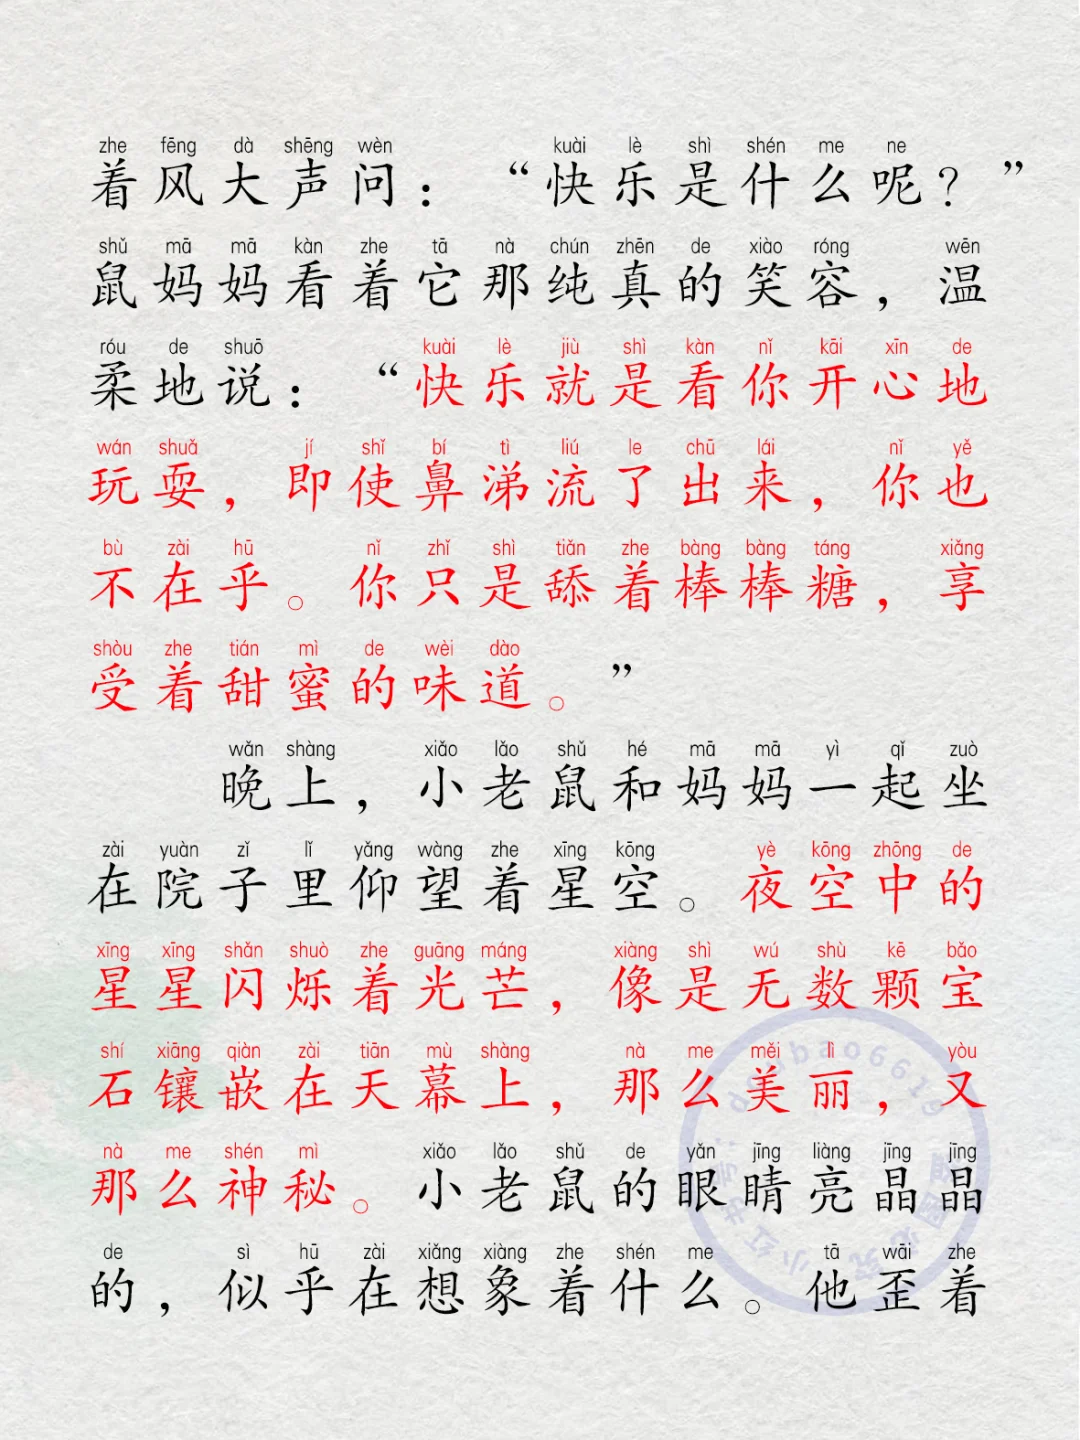 zhe fēng dà shēng wèn kuài lè shì shén me ne
着风大声问：“快乐是什么呢？”
shǔ mā mā kàn zhe tā nà chún zhēn de xiào róng wēn
鼠妈妈看着它那纯真的笑容，温
róu de shuō kuài lè jiù shì kàn nǐ kāi xīn de
柔地说：“快乐就是看你开心地
wán shuǎ jí shǐ bí tì liú le chū lái nǐ yě
玩耍，即使鼻涕流了出来，你也
bù zài hū nǐ zhǐ shì tiǎn zhe bàng bàng táng xiǎng
不在乎。你只是舔着棒棒糖，享
shòu zhe tián mì de wèi dào
受着甜蜜的味道。”
wǎn shàng xiǎo lǎo shǔ hé mā mā yì qǐ zuò
晚上，小老鼠和妈妈一起坐
zài yuàn zǐ lǐ yǎng wàng zhe xīng kōng yè kōng zhōng de
在院子里仰望着星空。夜空中的
xīng xīng shǎn shuò zhe guāng máng xiàng shì wú shù kē bǎo
星星闪烁着光芒，像是无数颗宝
shí xiāng qiàn zài tiān mù shàng nà me měi lì yòu
石镶嵌在天幕上，那么美丽，又
nà me shén mì xiǎo lǎo shǔ de yǎn jīng liàng jīng jīng
那么神秘。小老鼠的眼睛亮晶晶
de sì hū zài xiǎng xiàng zhe shén me tā wāi zhe
的，似乎在想象着什么。他歪着